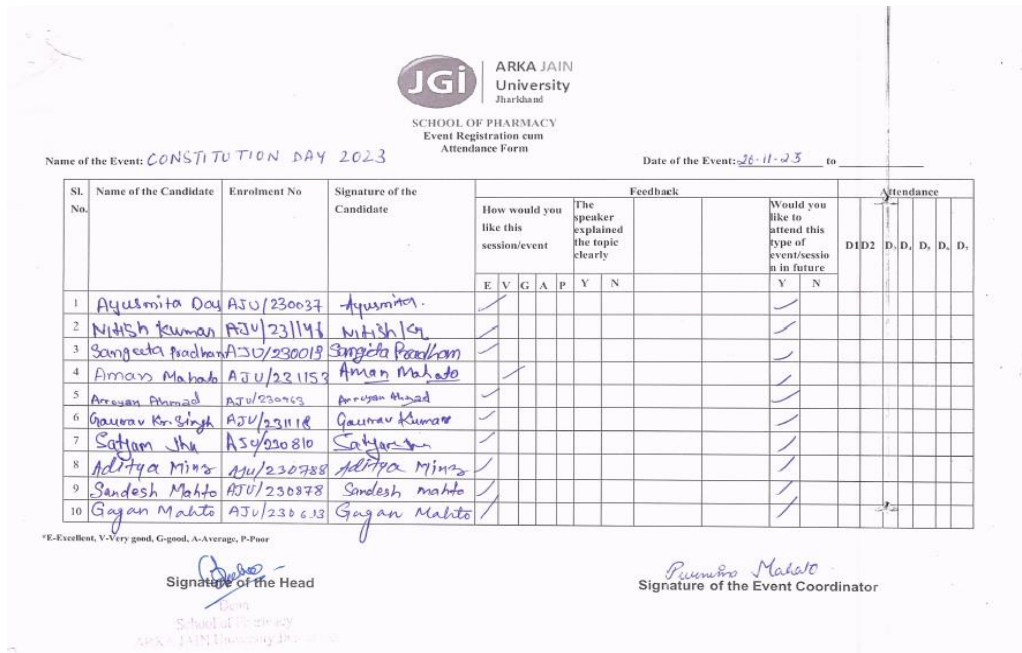 JGi
ARKA JAIN
University
Jharkhand
SCHOOL OF PHARMACY
Event Registration cum
Attendance Form
Name of the Event: CONSTITUTION DAY 2023 Date of the Event: 26-11-23 to
Sl. No. Name of the Candidate Enrolment No Signature of the Candidate Feedback Attendance
How would you like this session/event The speaker explained the topic clearly Would you like to attend this type of event/session in future D1 D2 D3 D4 D5 D6 D7
E V G A P Y N Y N
1 Ayusmita Day AJU/230037 Ayusmita.
2 Nitish Kumar AJU/231146 Nitish Kr
3 Sangeeta Pradhan AJU/230019 Sangita Pradhan
4 Aman Mahato AJU/231153 Aman Mahato
5 Arreyan Ahmad AJU/230963 Arreyan Ahmad
6 Gaurav Kr. Singh AJU/231118 Gaurav Kumar
7 Satyam Jha AJU/230810 Satyam
8 Aditya Minz AJU/230788 Aditya Minz
9 Sandesh Mahto AJU/230878 Sandesh mahto
10 Gagan Mahto AJU/230613 Gagan Mahto
*E-Excellent, V-Very good, G-good, A-Average, P-Poor
Signature of the Head
Mahato
Signature of the Event Coordinator
Dean
School of Pharmacy
ARKA JAIN University